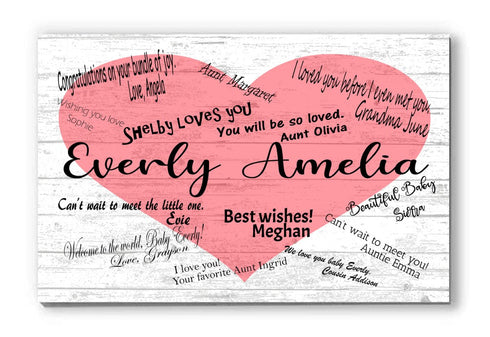 Congratulations on your bundle of joy
Love, Angela
Aunt Margaret
I loved you before I even met you
Grandma June
Wishing you love
Sophie
Shelby Loves you
You will be so loved.
Aunt Olivia
Everly Amelia
Beautiful Baby
Sierra
Can't wait to meet the little one.
Evie
Best wishes!
Meghan
Can't wait to meet you!
Auntie Emma
Welcome to the world, Baby Everly!
Love, Grayson
I love you!
Your favorite Aunt Ingrid
We love you baby Everly
Cousin Addison